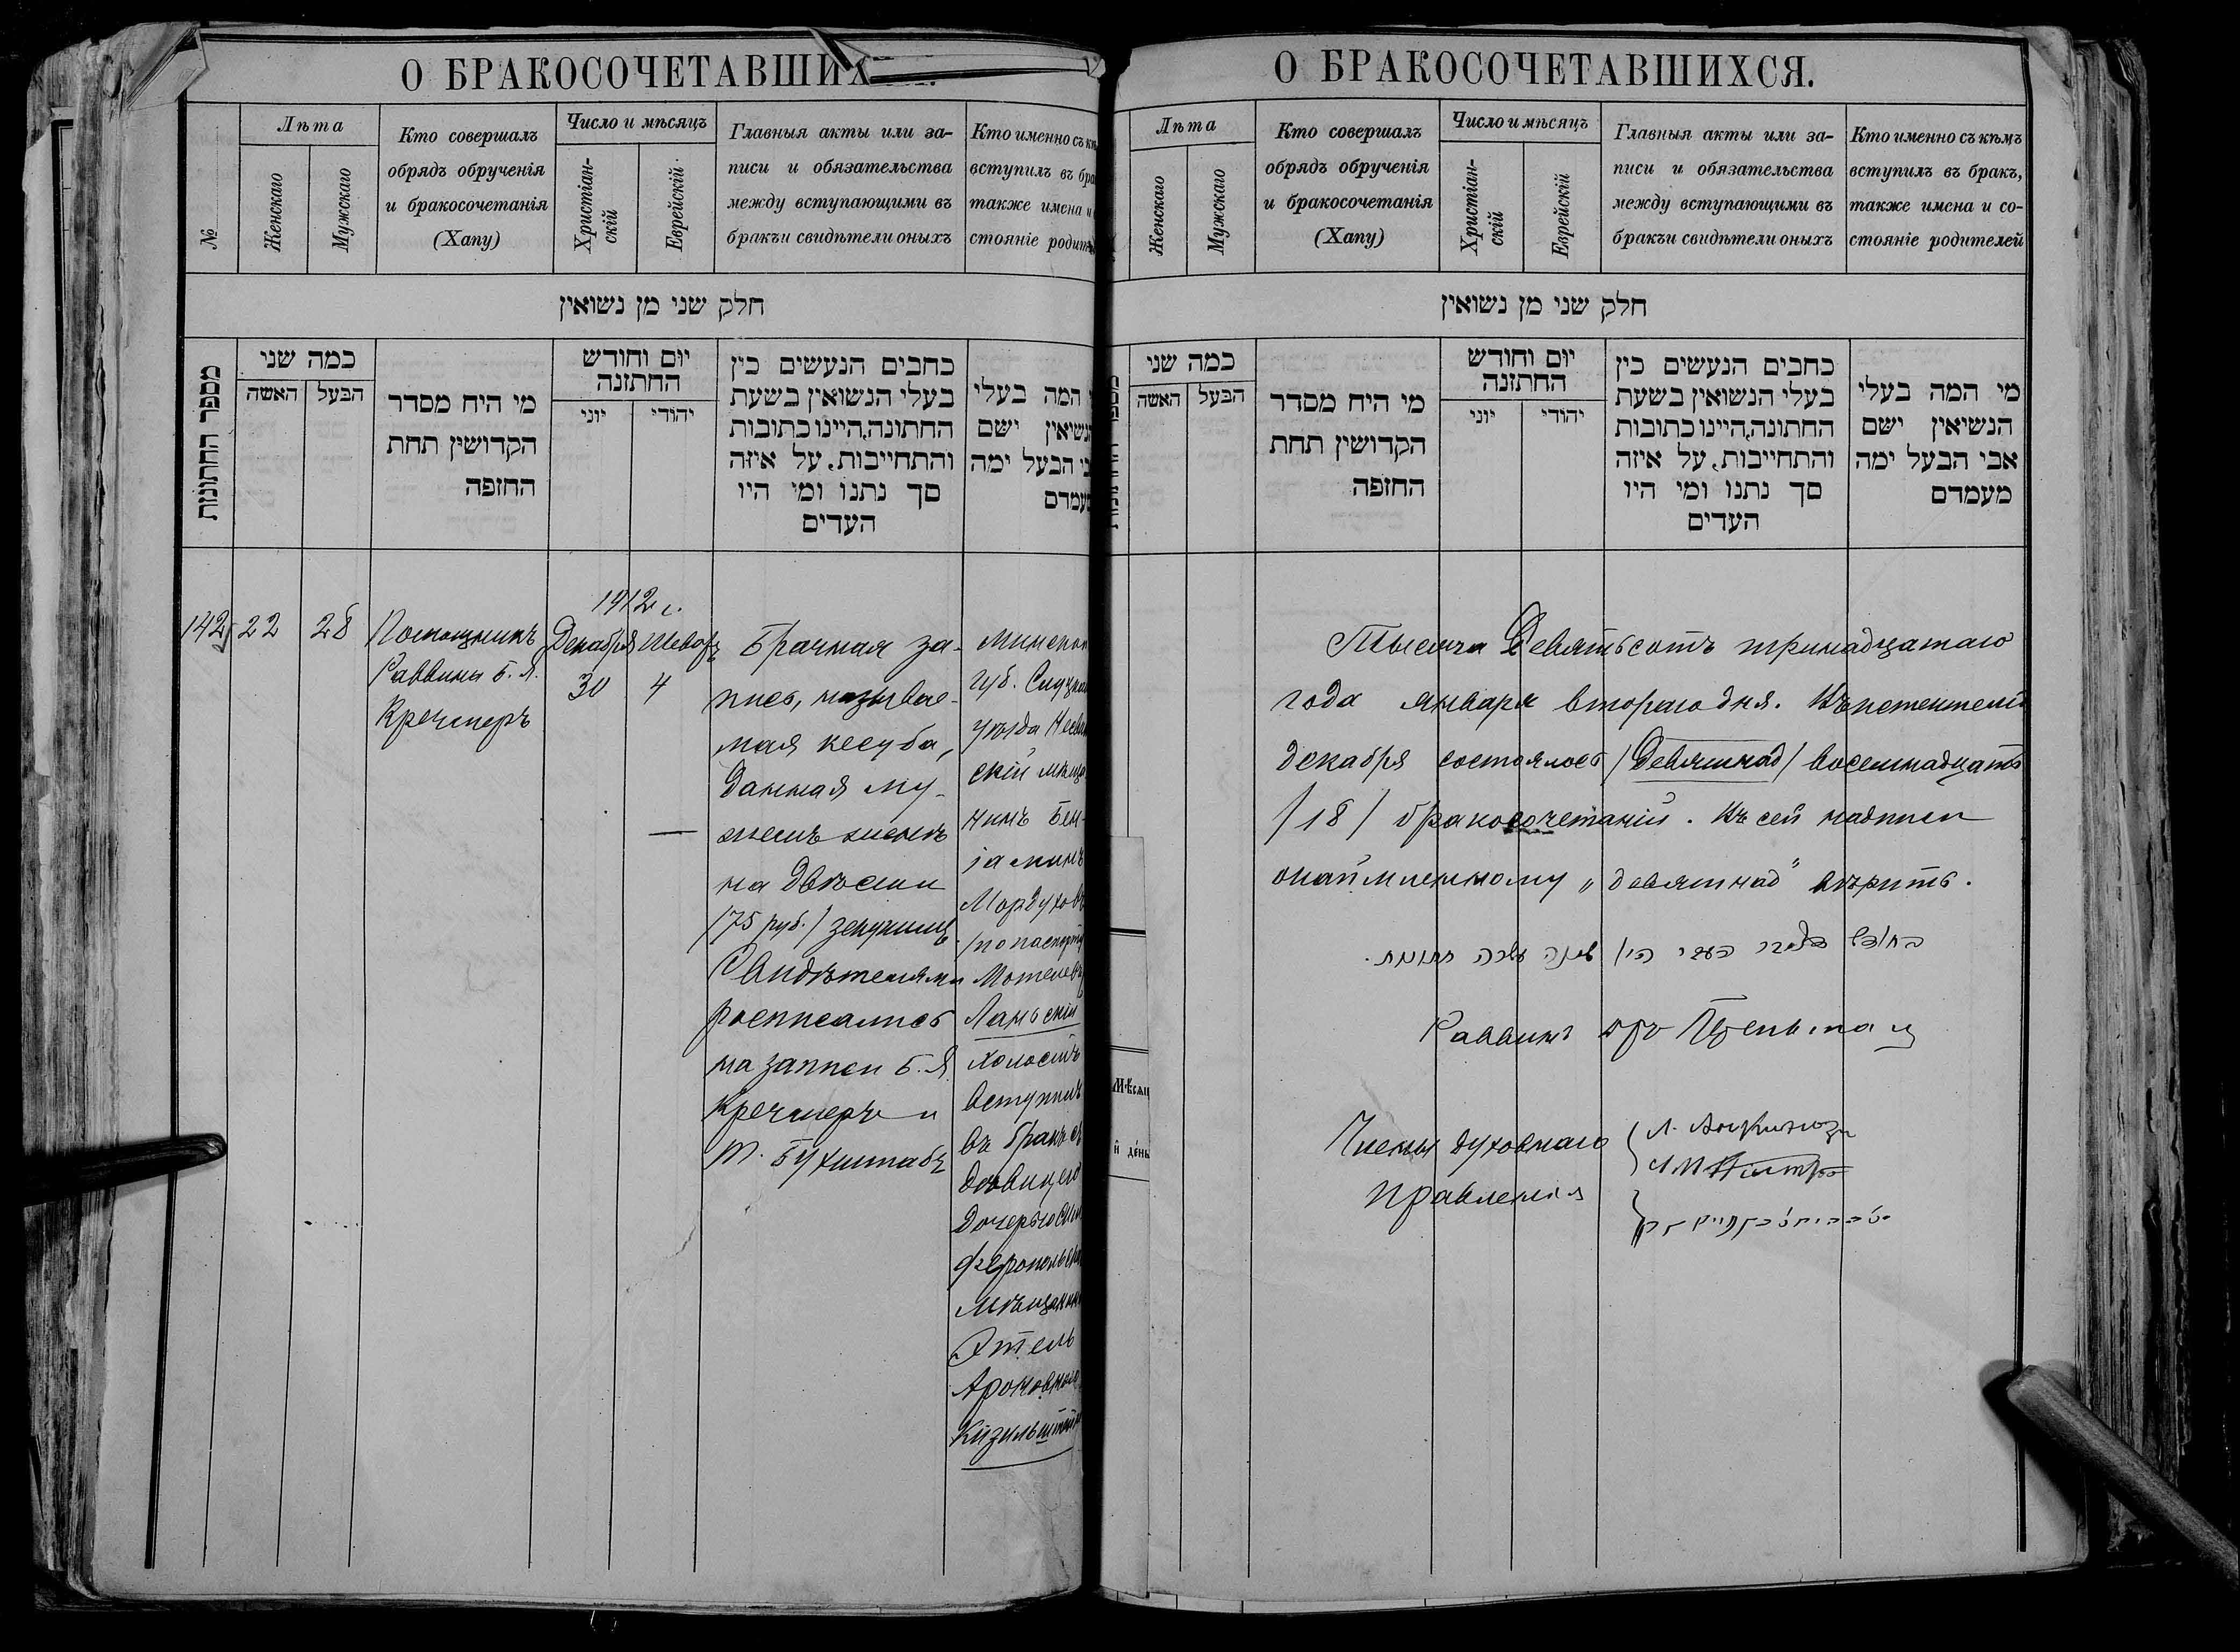 О БРАКОСОЧЕТАВШИХ
№
Лѣта
Женскаго
Мужскаго
Кто совершалъ
обрядъ обрученія
и бракосочетанія
(Хапу)
Число и мѣсяцъ
Христіан-
скій
Еврейскій.
Главныя акты или за-
писи и обязательства
между вступающими въ
бракъи свидѣтели оныхъ
Кто именно съ
вступилъ въ бра
также имена и
стояніе родит
חלק שני מן נשואין
מספר החתונות
כמה שני
האשה
הבעל
מי היח מסדר
הקדושין תחת
החופה
יום וחודש
החתונה
יוני
יהודי
כחבים הנעשים כין
בעלי הנשואין בשעת
החתונה,היינו כתובות
והתחייבות, על איזה
סך נתנו ומי היו
העדים
המה בעלי
נשיאין ישם
בי הבעל ימה
מעמדם
142
22
28
Помощникъ
Раввина Б. Я.
Кречмеръ
1912 г.
Декабря
30
Шеватъ
4
—
Брачная за-
пись, называе-
мая кесуба,
данная му-
жемъ женѣ
на двѣсти
/75 руб./
Свидѣтелями
росписались
на записи Б. Я.
Кречмеръ и
Т. Бухштабъ
Минской
губ. Слуцкаго
уѣзда
скій мѣща
нинъ Бен-
іаминъ
Мордуховъ
/по паспорту
Мотелевъ
Ланьскій
холостъ
вступилъ
въ бракъ съ
дѣвицею
дочерью Сим
феропольск
мѣщанина
Этель
Ароновною
Кизильштейн
О БРАКОСОЧЕТАВШИХСЯ.
Лѣта
Женскаго
Мужскаго
Кто совершалъ
обрядъ обрученія
и бракосочетанія
(Хапу)
Число и мѣсяцъ
Христіан-
скій
Еврейскій
Главныя акты или за-
писи и обязательства
между вступающими въ
бракъи свидѣтели оныхъ
Кто именно съ кѣмъ
вступилъ въ бракъ,
также имена и со-
стояніе родителей
חלק שני מן נשואין
כמה שני
האשה
הבעל
מי היח מסדר
הקדושין תחת
החופה
יום וחודש
החתונה
יוני
יהודי
כחבים הנעשים כין
בעלי הנשואין בשעת
החתונה,היינו כתובות
והתחייבות, על איזה
סך נתנו ומי היו
העדים
מי המה בעלי
הנשיאין ישם
אבי הבעל ימה
מעמדם
Мѣсяц
й день
Тысяча девятьсотъ тринадцатаго
года января второго дня. Въ истекшемъ
декабря состоялось /девятнад/ восемнадцать
/18/ бракосочетаній. Въ сей надписи
„девятнад" вѣрить.
Раввинъ
Члены духовнаго
Правленія